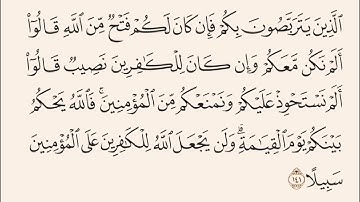 ٱلَّذِينَ يَتَرَبَّصُونَ بِكُمْ فَإِن كَانَ لَكُمْ فَتْحٌ مِّنَ ٱللَّهِ قَالُوٓا۟
أَلَمْ نَكُن مَّعَكُمْ وَإِن كَانَ لِلْكَٰفِرِينَ نَصِيبٌ قَالُوٓا۟
أَلَمْ نَسْتَحْوِذْ عَلَيْكُمْ وَنَمْنَعْكُم مِّنَ ٱلْمُؤْمِنِينَ ۚ فَٱللَّهُ يَحْكُمُ
بَيْنَكُمْ يَوْمَ ٱلْقِيَٰمَةِ ۗ وَلَن يَجْعَلَ ٱللَّهُ لِلْكَٰفِرِينَ عَلَى ٱلْمُؤْمِنِينَ
سَبِيلًا ١٤١